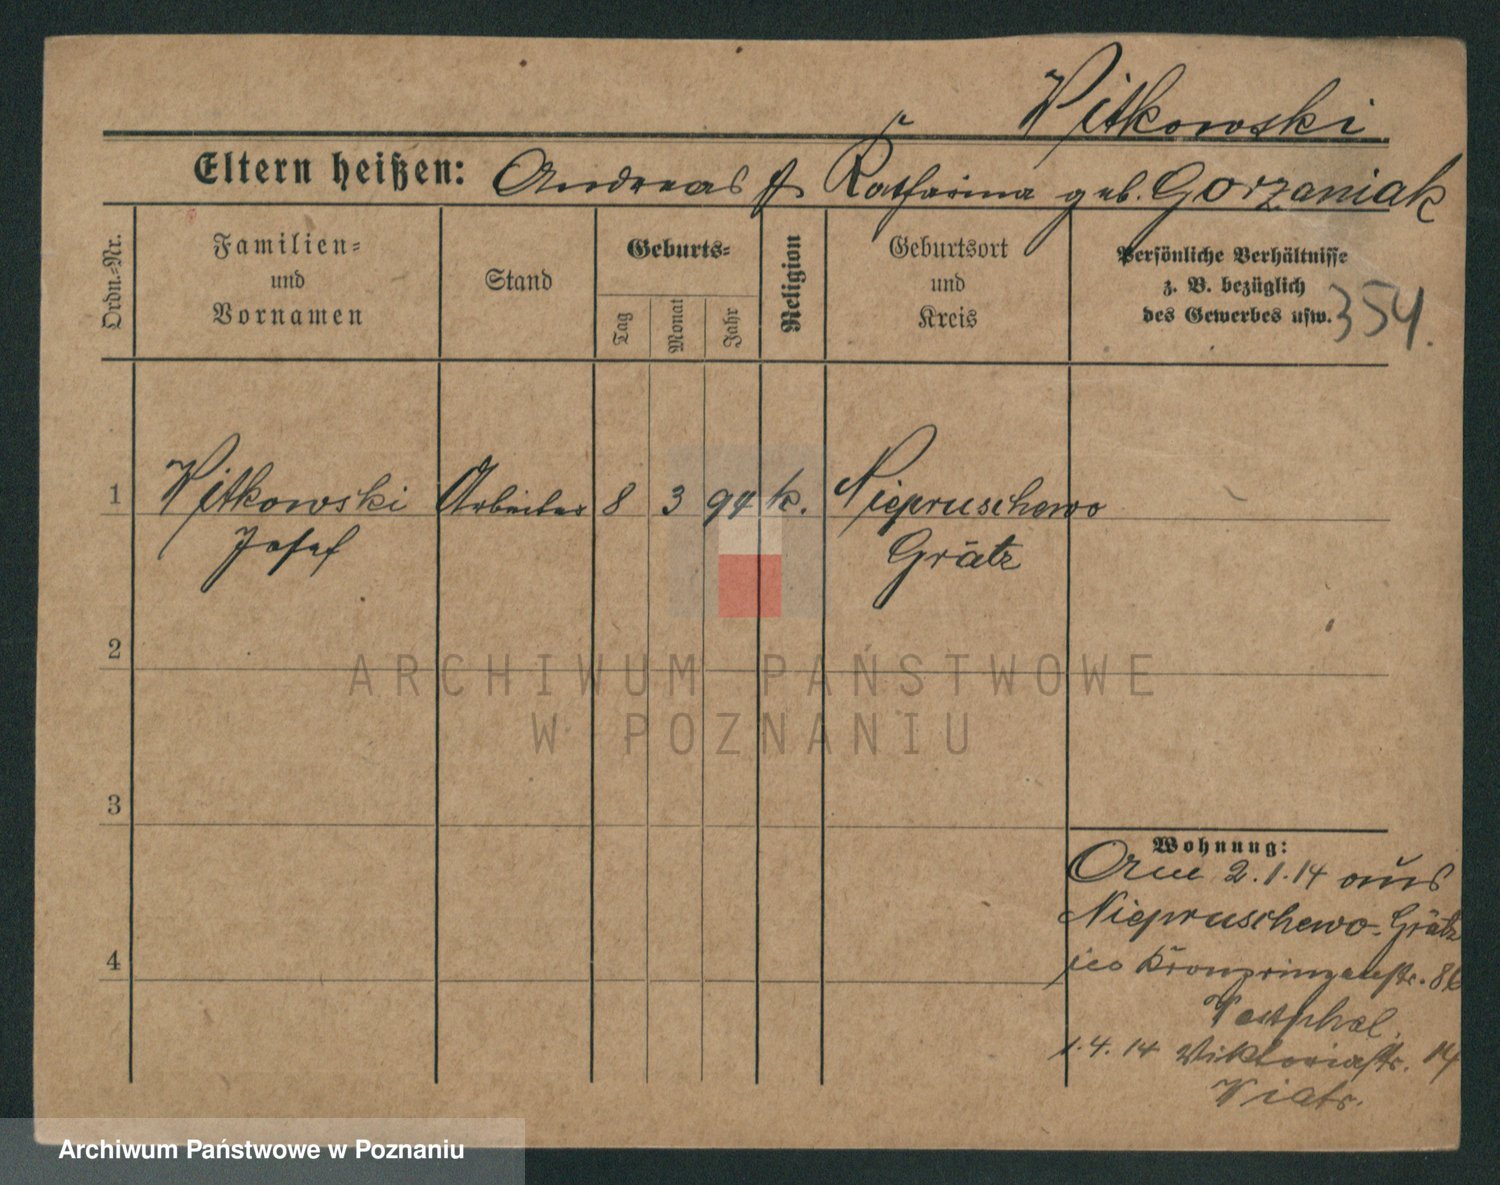 Witkowski
Eltern heißen: Andreas & Katharina geb. Gorzaniak
Ordn.-Nr.
Familien-
und
Vornamen
Stand
Geburts-
Tag
Monat
Jahr
Religion
Geburtsort
und
Kreis
Persönliche Verhältnisse
z. B. bezüglich
des Gewerbes usw.
354.
1 Witkowski Arbeiter 8 3 94 k. Niepruschewo
Josef Grätz
2
3
4
Wohnung:
2.1.14 aus
Niepruschewo-Grätz
Kronprinzenstr. 86
Westphal.
1.4.14 Viktoriastr. 14
ARCHIWUM PAŃSTWOWE
W POZNANIU
Archiwum Państwowe w Poznaniu